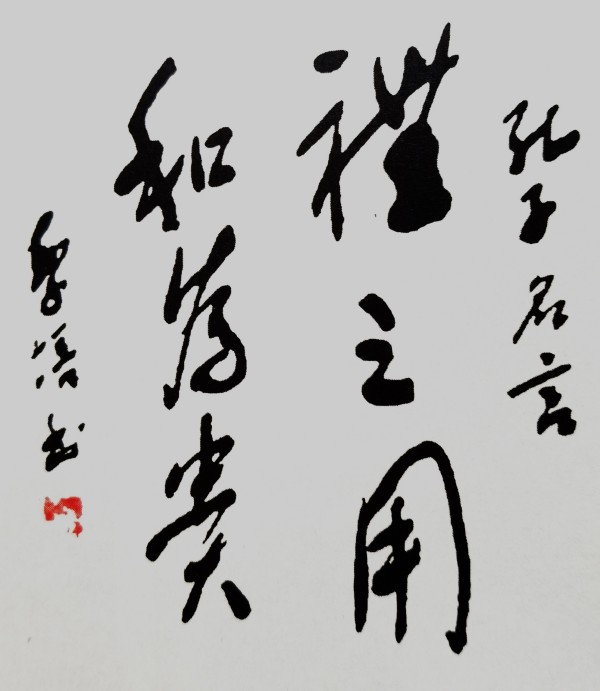 孔子名言
禮之用
和為貴
書